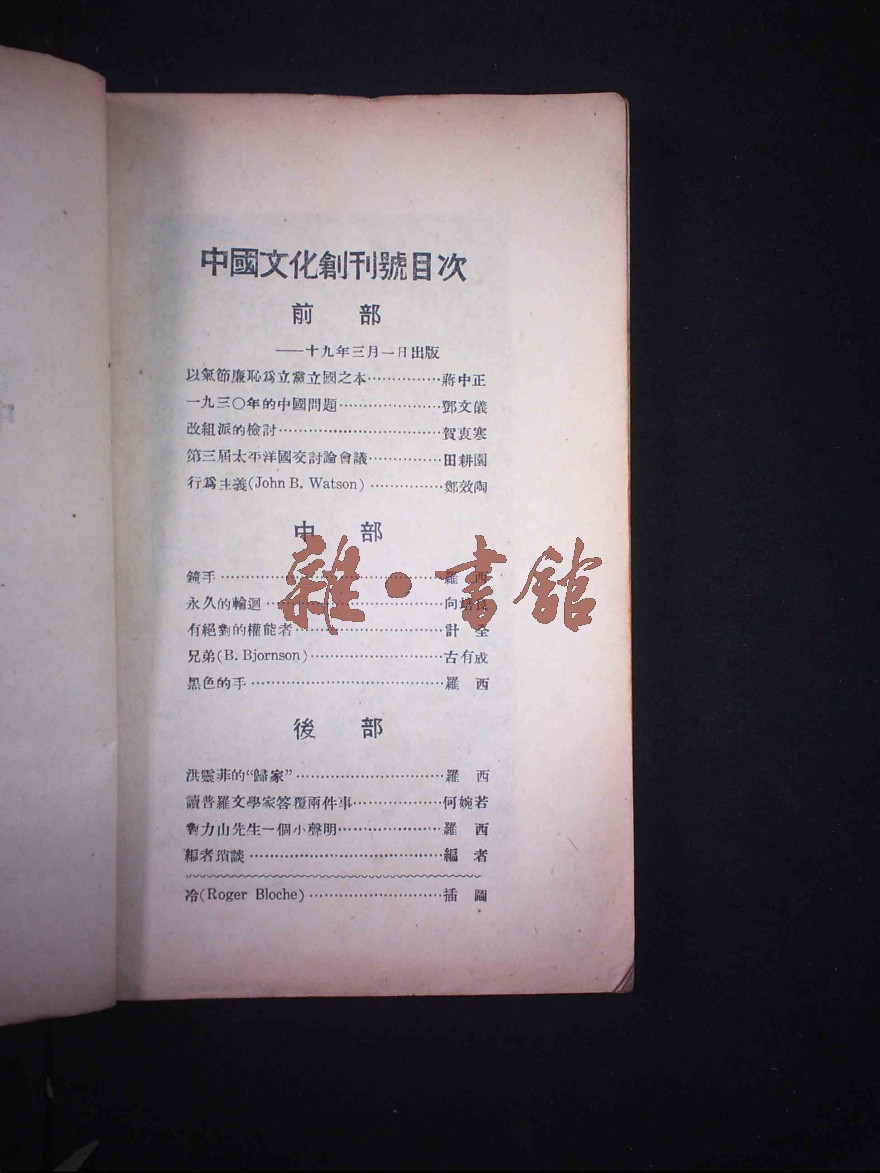 中國文化創刊號目次
前 部
——十九年三月一日出版
以氣節廉恥爲立黨立國之本……………蔣中正
一九三〇年的中國問題………………鄧文儀
改組派的檢討…………………………賀衷寒
第三屆太平洋國交討論會議……………田耕園
行爲主義(John B. Watson)……………鄭效陶
中 部
鐘手……………………………………羅 西
永久的輪迴……………………………向培良
有絕對的權能者………………………計 全
兄弟(B. Bjornson)……………………古有成
黑色的手………………………………羅 西
後 部
洪靈菲的“歸家”………………………羅 西
讀普羅文學家答覆兩件事………………何婉若
對力山先生一個小聲明…………………羅 西
編者瑣談………………………………編 者
冷(Roger Bloche)……………………插 圖
雜·書館